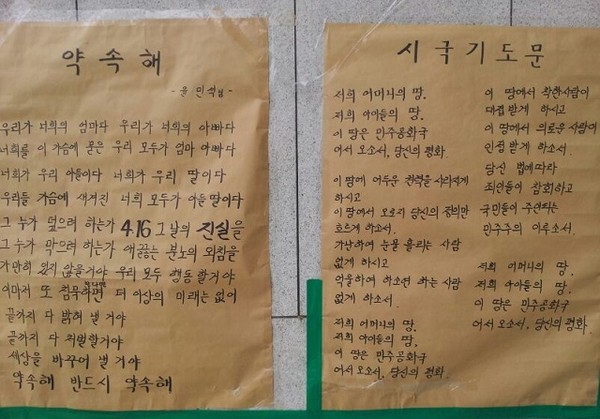 약속해
- 윤민석님
우리가 너희의 엄마다 우리가 너희의 아빠다
너희를 이 가슴에 묻은 우리 모두가 엄마 아빠다
너희가 우리 아들이다 너희가 우리 딸이다
우리들 가슴에 새겨진 너희 모두가 아들 딸이다
그 누가 덮으려 하는가 4.16 그날의 진실을
그 누가 막으려 하는가 애끓는 분노의 외침을
가만히 있지 않을거야 우리 모두 행동할거야
이마저 또 침묵한다면 더 이상의 미래는 없어
끝까지 다 밝혀 낼 거야
끝까지 다 처벌할거야
세상을 바꾸어 낼 거야
약속해 반드시 약속해
시국기도문
저희 어머니의 땅,
저희 아이들의 땅,
이 땅은 민주공화국
어서 오소서, 당신의 평화.
이 땅에 어두운 권력을 사라지게
하시고
이 땅에서 오로지 당신의 정의만
흐르게 하소서.
가난하여 눈물 흘리는 사람
없게 하시고
억울하여 하소연 하는 사람
없게 하소서.
저희 어머니의 땅,
저희 아이들의 땅,
이 땅은 민주공화국
어서 오소서, 당신의 평화.
이 땅에서 착한사람이
대접받게 하시고
이 땅에서 의로운 사람이
인정받게 하소서.
당신 법에따라
죄인들이 참회하고
국민들이 주인되는
민주주의 이루소서.
저희 어머니의 땅,
저희 아이들의 땅,
이 땅은 민주공화국
어서 오소서, 당신의 평화.